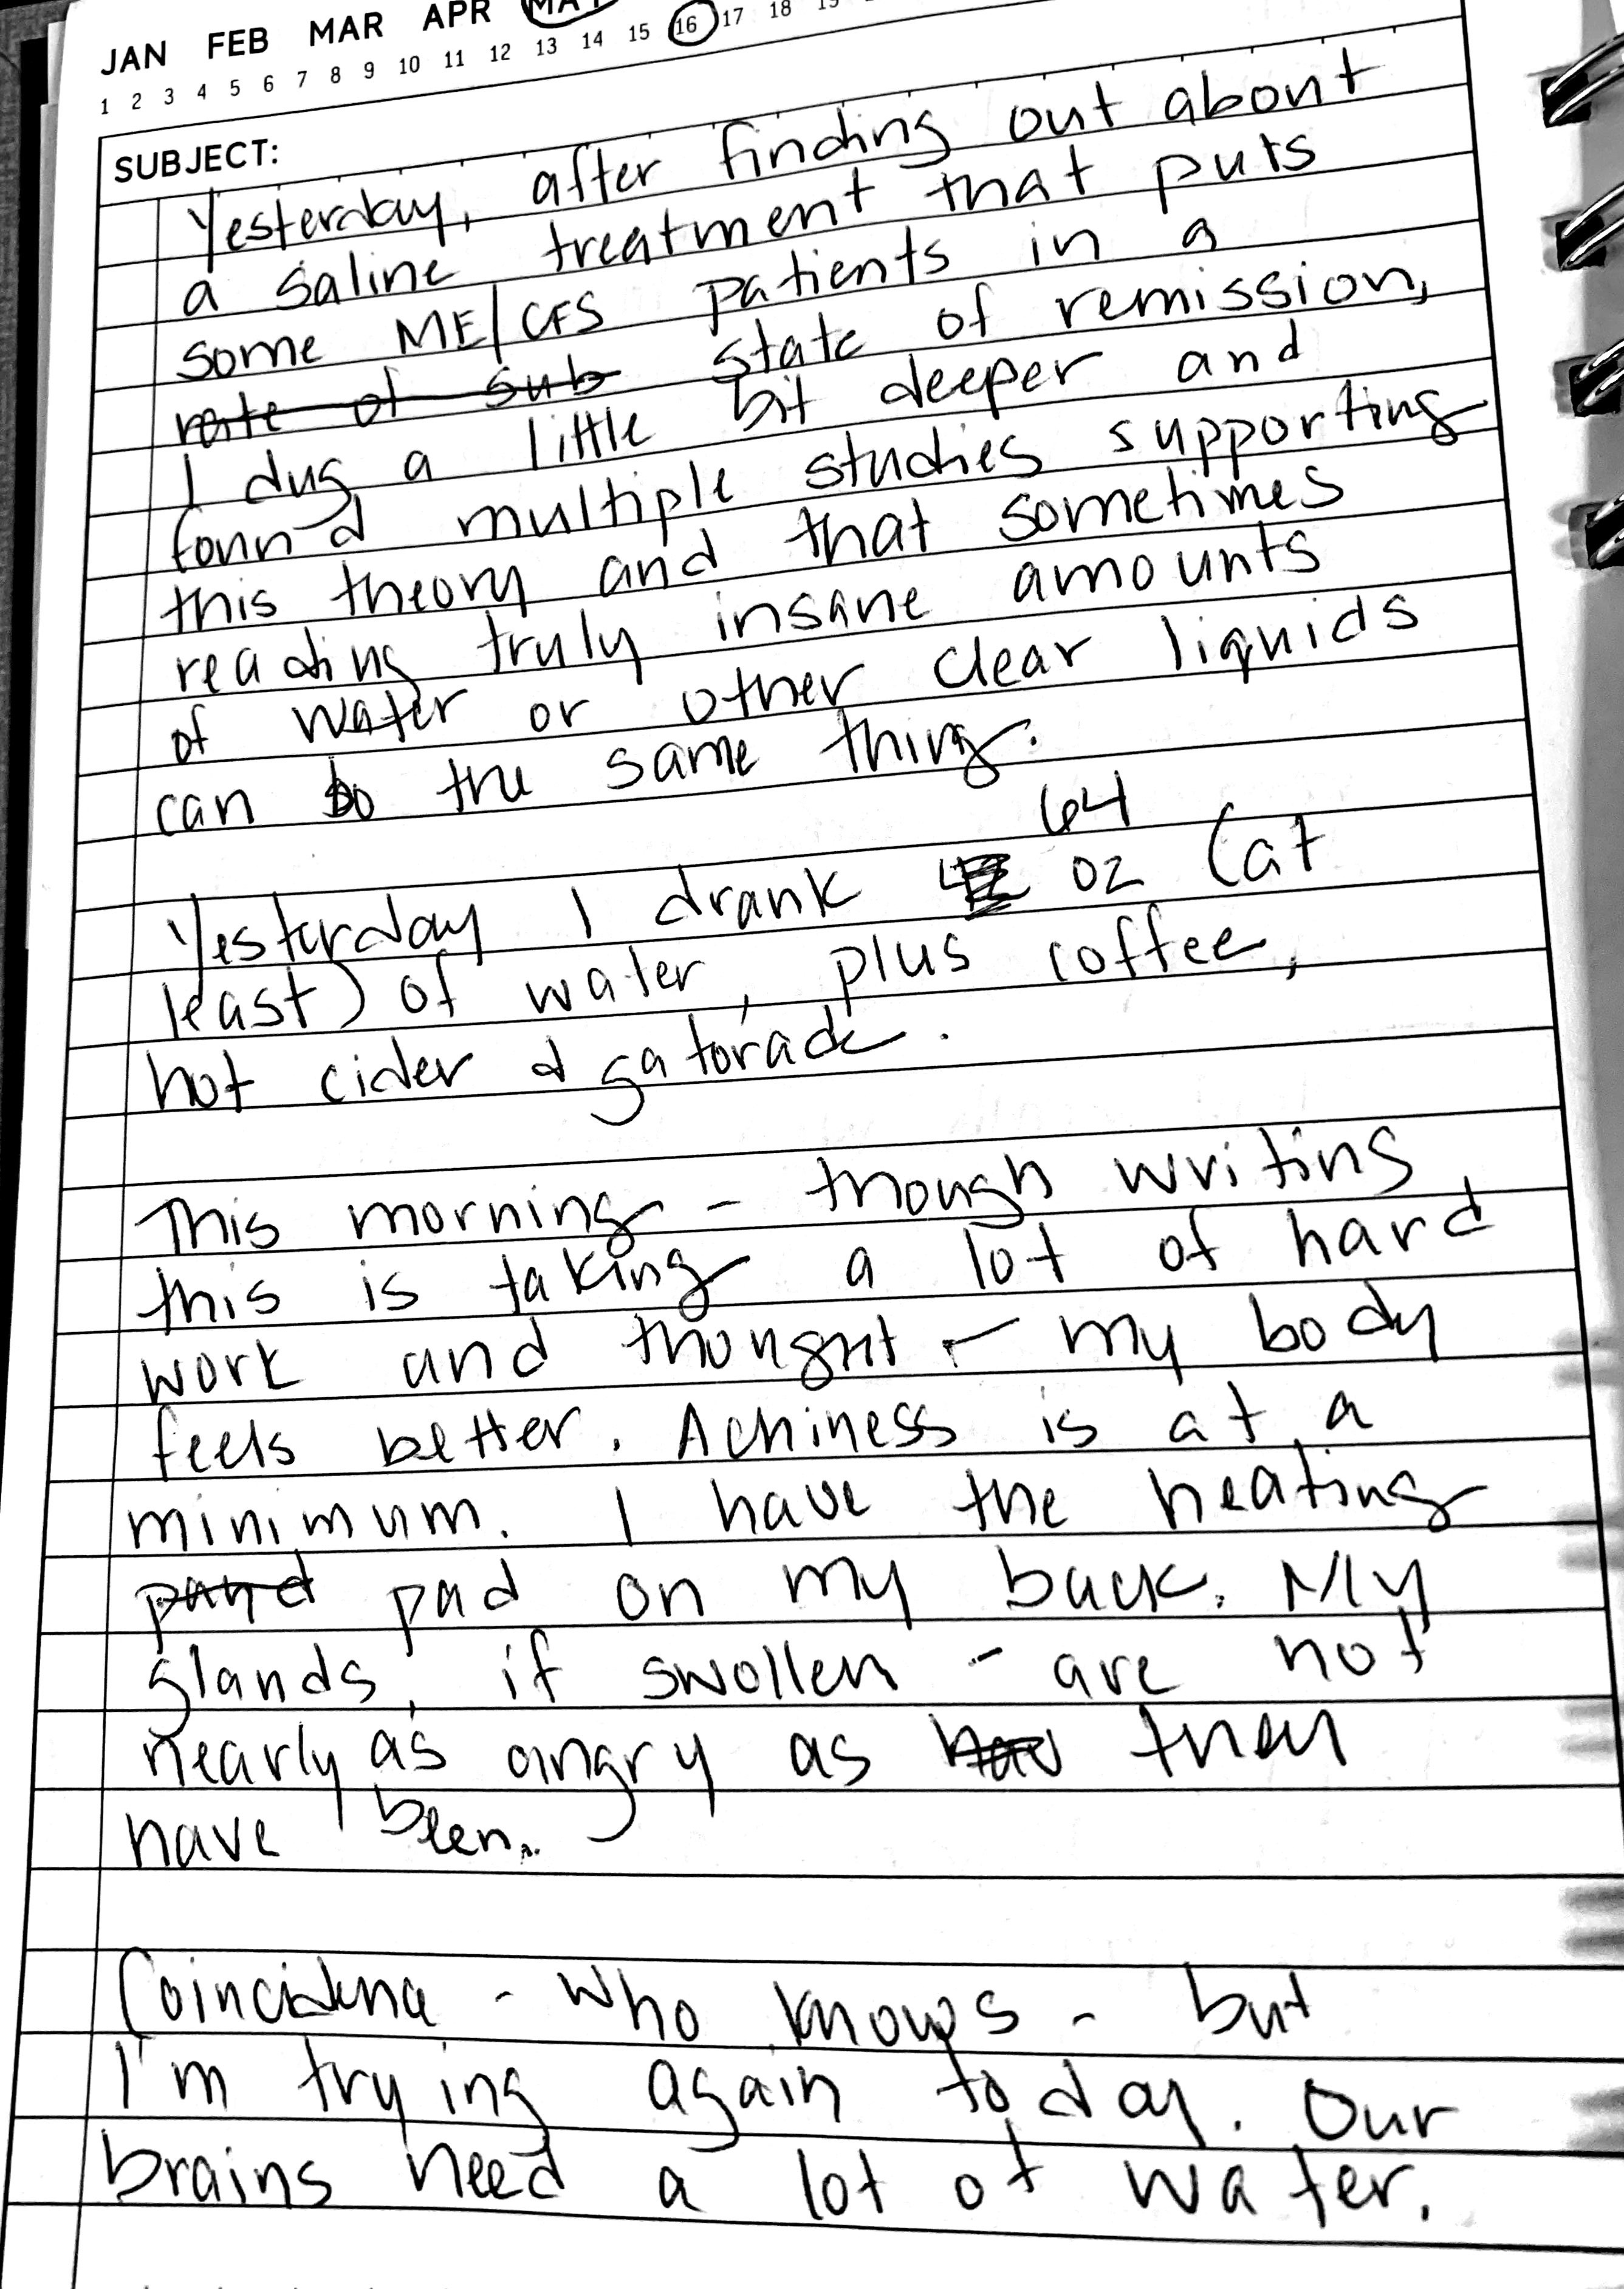 JAN FEB MAR APR MAY
1 2 3 4 5 6 7 8 9 10 11 12 13 14 15 16 17 18 19
SUBJECT:
Yesterday, after finding out about
a saline treatment that puts
some ME/CFS patients in a
rate of sub state of remission,
I dug a little bit deeper and
found multiple studies supporting
this theory and that sometimes
reading truly insane amounts
of water or other clear liquids
can do the same thing.
64
Yesterday I drank oz (at
least) of water, plus coffee,
hot cider & gatorade.
This morning - though writing
this is taking a lot of hard
work and thought - my body
feels better. Achiness is at a
minimum. I have the heating
pand pad on my back. My
glands, if swollen - are not
nearly as angry as they
have been.
Coincidence - who knows - but
I'm trying again today. Our
brains need a lot of water.